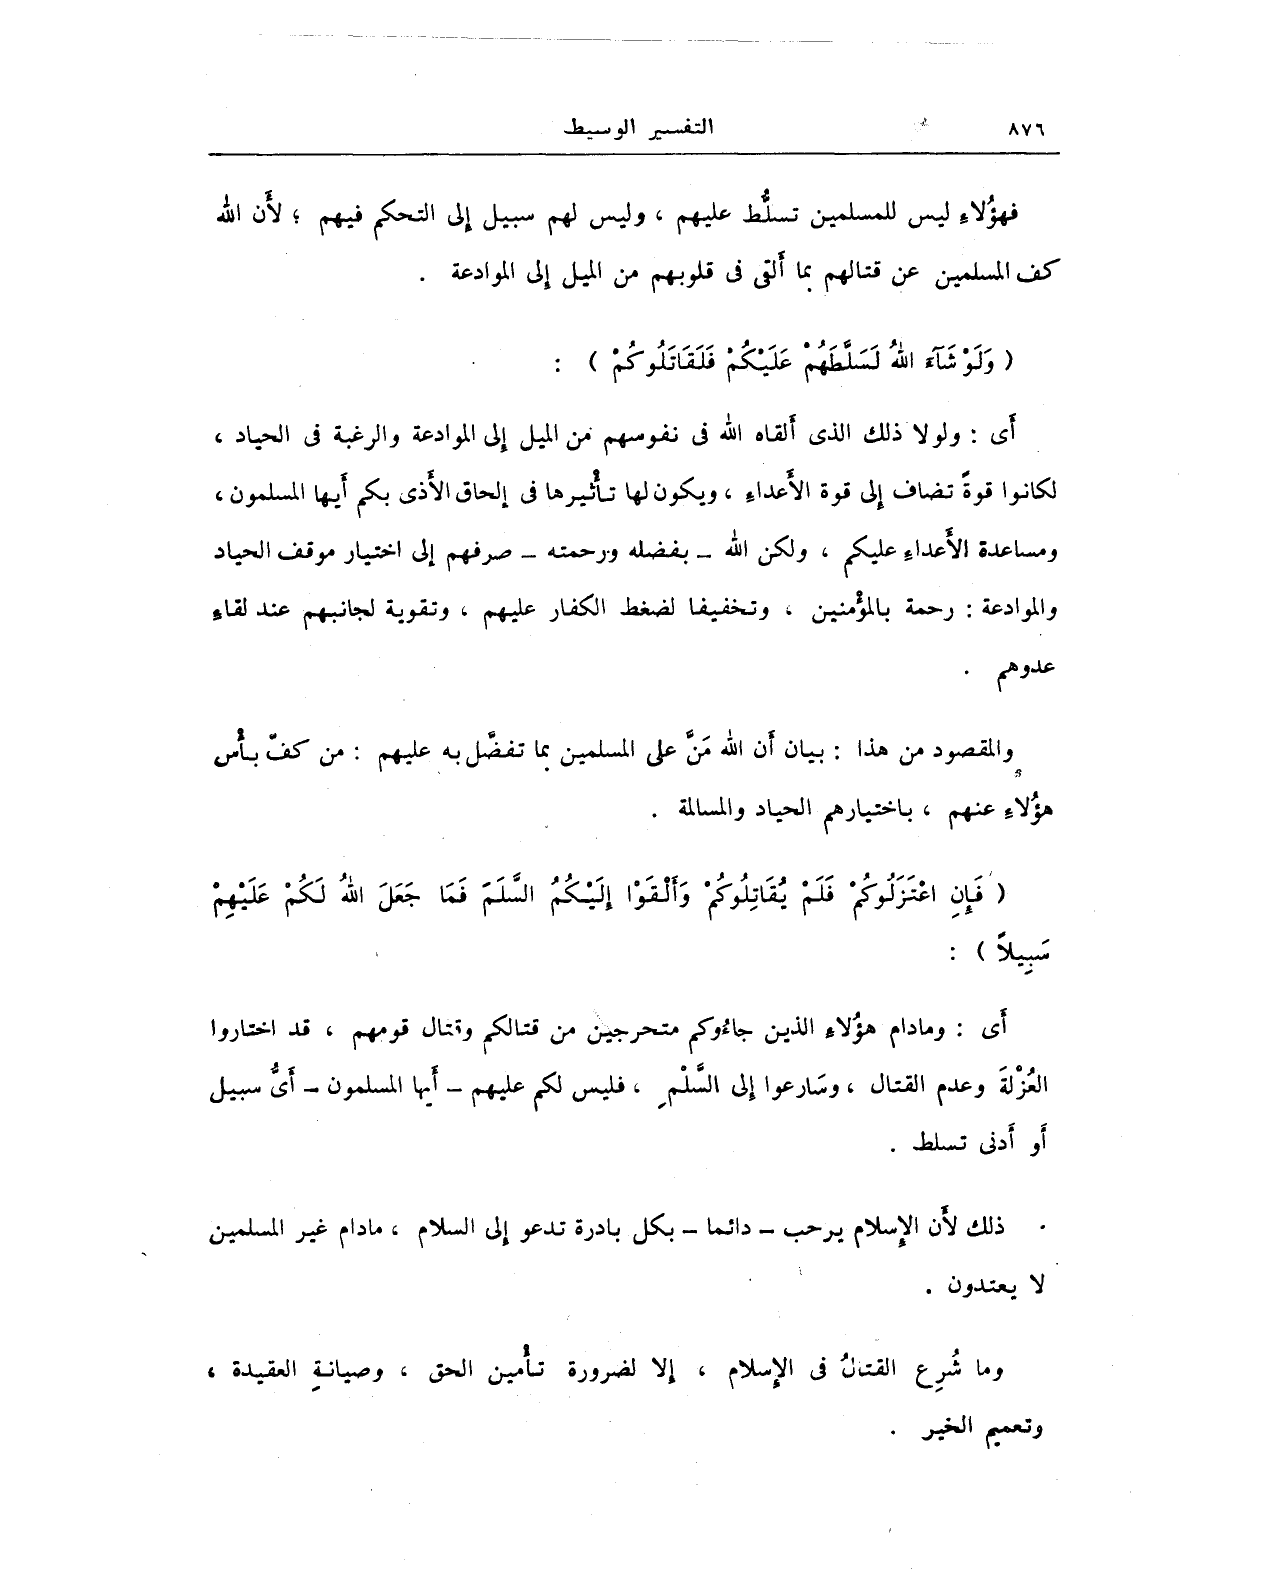 ٨٧٦
التفسير الوسيط
فهؤُلاءِ ليس للمسلمين تسلُّط عليهم ، وليس لهم سبيل إلى التحكم فيهم ؛ لأَن الله
كف المسلمين عن قتالهم بما أَلقى فى قلوبهم من الميل إلى الموادعة .
( وَلَوْ شَآءَ اللهُ لَسَلَّطَهُمْ عَلَيْكُمْ فَلَقَاتَلُوكُمْ ) :
أَى : ولولا ذلك الذى أَلقاه الله فى نفوسهم من الميل إلى الموادعة والرغبة فى الحياد ،
لكانوا قوةً تضاف إلى قوة الأَعداءِ ، ويكون لها تأْثيرها فى إلحاق الأَذى بكم أَيها المسلمون ،
ومساعدة الأَعداءِ عليكم ، ولكن الله ـ بفضله ورحمته ـ صرفهم إلى اختيار موقف الحياد
والموادعة : رحمة بالمؤْمنين ، وتخفيفا لضغط الكفار عليهم ، وتقوية لجانبهم عند لقاءِ
عدوهم .
والمقصود من هذا : بيان أَن الله مَنَّ على المسلمين بما تفضَّل به عليهم : من كفّ بأْس
هؤُلاءِ عنهم ، باختيارهم الحياد والمسالمة .
( فَإِنِ اعْتَزَلُوكُمْ فَلَمْ يُقَاتِلُوكُمْ وَأَلْقَوْا إِلَيْكُمُ السَّلَمَ فَمَا جَعَلَ اللهُ لَكُمْ عَلَيْهِمْ
سَبِيلاً ) :
أَى : ومادام هؤُلاءِ الذين جاءُوكم متحرجين من قتالكم وقتال قومهم ، قد اختاروا
العُزْلةَ وعدم القتال ، وسَارعوا إلى السَّلْمِ ، فليس لكم عليهم ـ أَيها المسلمون ـ أَىُّ سبيل
أَو أَدنى تسلط .
ذلك لأَن الإِسلام يرحب ـ دائما ـ بكل بادرة تدعو إلى السلام ، مادام غير المسلمين
لا يعتدون .
وما شُرِع القتالُ فى الإِسلام ، إلا لضرورة تأْمين الحق ، وصيانةِ العقيدة ،
وتعميم الخير .